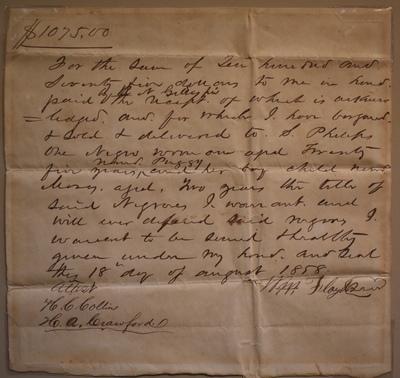 $1075.00
For the Sum of Ten hundred and
Seventy five dollars to me in hand
by W N Gillespie
paid the Receipt of which is acknow
=ledged. and for which I have bargand
& Sold & delivered to S. Philips
One Negro woman aged Twenty
named Puggy
five years, and her boy child named
Moses. aged. Two years the title of
Said Negroes I warrant and
will ever defend said negroes I
warrent to be sound & healthy
given under my hand. and Seal
this 18 day of august 1858
Attest
H. C. Collins
H. A. Crawford